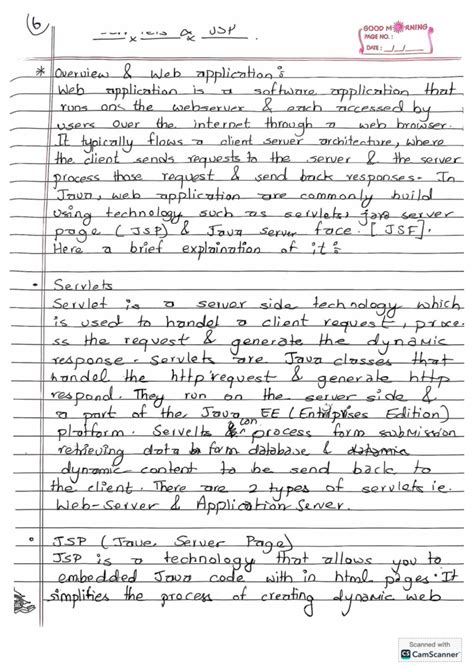 6
Servlets & JSP
GOOD MORNING
PAGE NO. :
DATE: / /
* Overview & Web application :
Web application is a software application that
runs ons the webserver & each accessed by
users over the internet through a web browser.
It typically flows a client server architecture, where
the client sends requests to the server & the server
process those request & send back responses. In
Java, web application are commonly build
using technology such as servlets, java server
page (JSP) & Java server face. [JSF].
Here a brief explaination of it :
• Servlets
Servlet is a server side technology which
is used to handel a client request, proce-
ss the request & generate the dynamic
response. Servlets are Java classes that
handel the http request & generate http
respond. They run on the server side &
a part of the Java EE (Enterprises Edition)
platform. Servelts & can process form submission
retrieving data & form database &
dynamic content to be send back to
the client. There are 2 types of servlets ie.
Web-Server & Application Server.
• JSP (Java, Server Page)
JSP is a technology that allows you to
embedded Java code with in html pages. It
simplifies the process of creating dynamic web
Scanned with
CS CamScanner